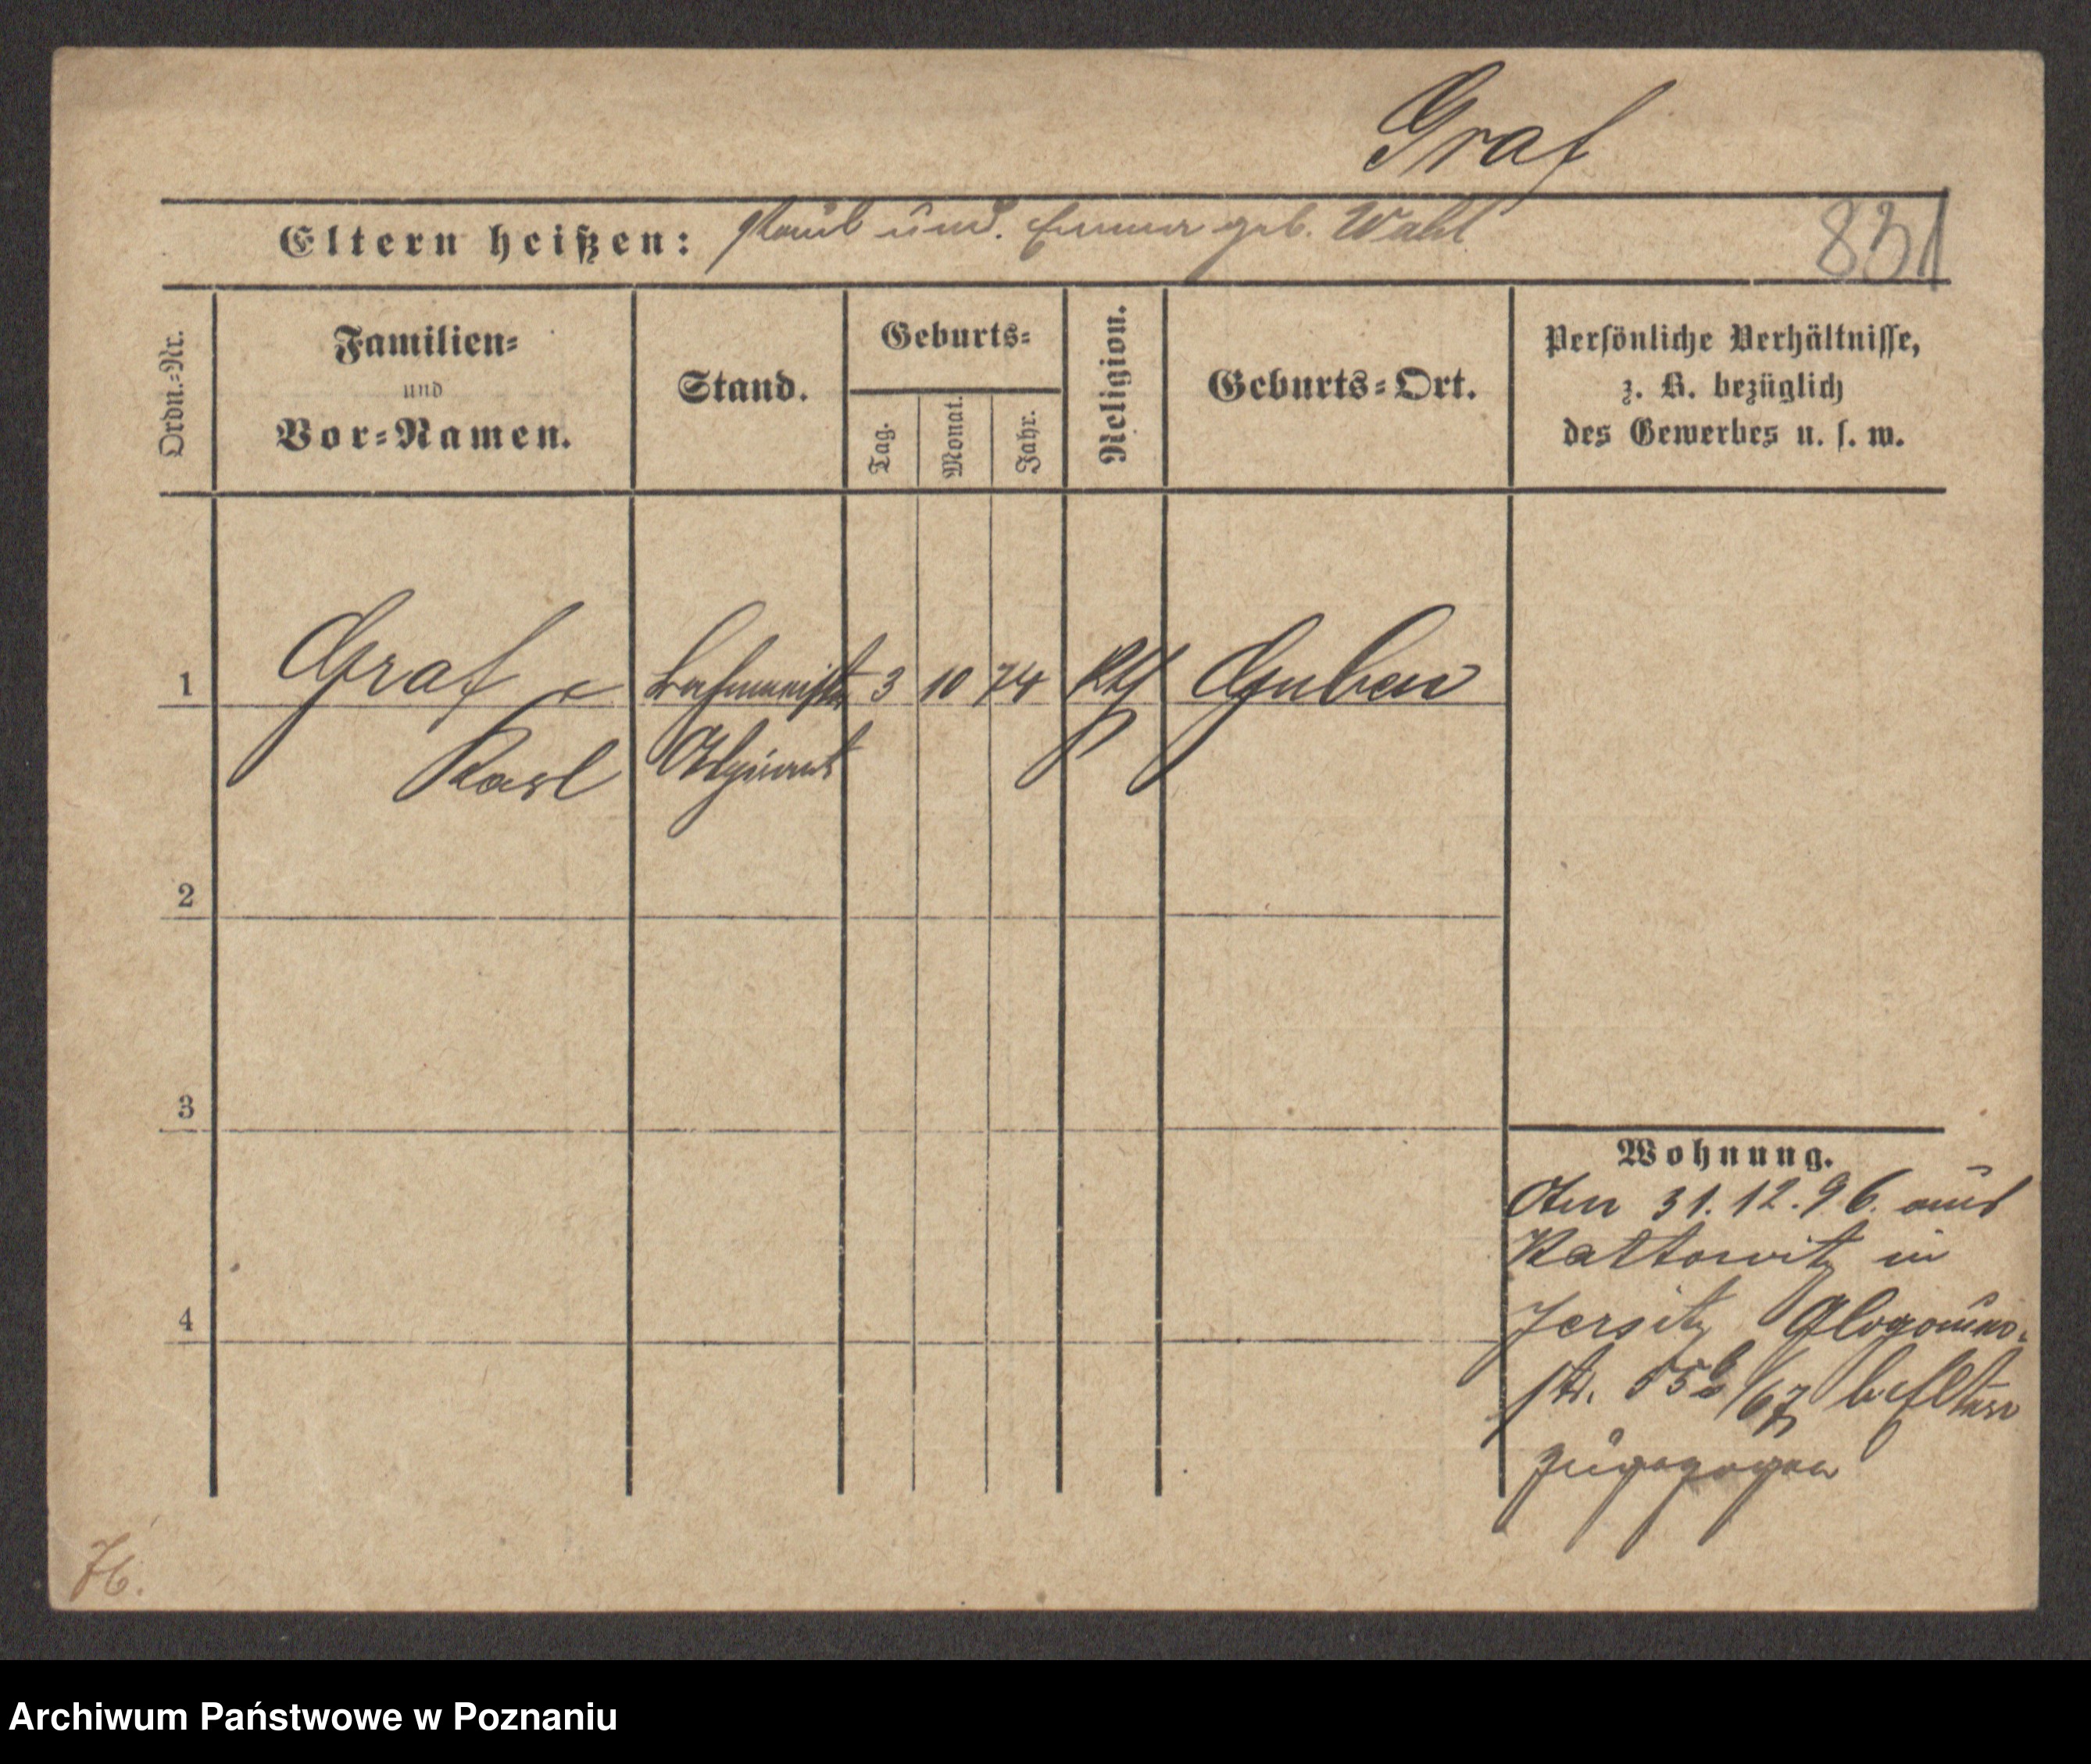 Graf
Eltern heißen: Paul und. Emma geb. Wahl
831
Ordn.-Nr.
Familien-
und
Vor-Namen.
Stand.
Geburts-
Tag.
Monat.
Jahr.
Religion.
Geburts-Ort.
Persönliche Verhältnisse,
z. B. bezüglich
des Gewerbes u. s. w.
1 Graf 3 10 74 Guben
Karl
2
3
4
Wohnung.
Am 31.12.96. aus
Kattowitz in
Jersitz
str. 55b/67 b/Eltern
zugezogen
Archiwum Państwowe w Poznaniu